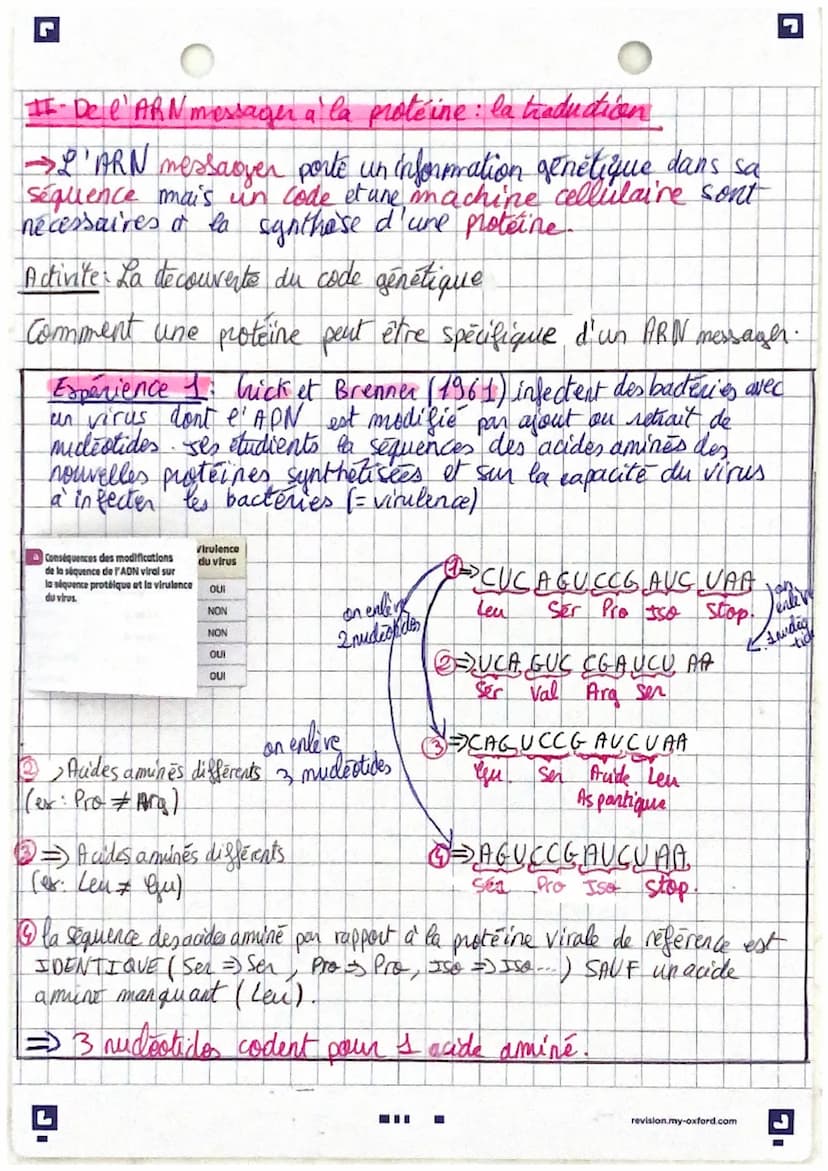 II- De l'ARN messager à la protéine : la traduction
→ L'ARN messager porte un information génétique dans sa
séquence mais un code et une machine cellulaire sont
nécessaires à la synthèse d'une protéine.
Activité : La découverte du code génétique
Comment une protéine peut être spécifique d'un ARN messager.
Expérience 1 : Crick et Brenner (1961) infectent des bactéries avec
un virus dont l'ADN est modifié par ajout ou retrait de
nucléotides. Ses étudients la séquences des acides aminés des
nouvelles protéines synthétisées et sur la capacité du virus
à infecter les bactéries (= virulence)
a Conséquences des modifications
de la séquence de l'ADN viral sur
la séquence protéique et la virulence
du virus.
Virulence
du virus
OUI
NON
NON
OUI
OUI
on enlève
2 nucléotides
① ⇒ CUC AGU CCG AUC UAA
Leu Sér Pro Iso Stop.
on
enlève
1 nucléo
tide
② ⇒ UCA GUC CGA UCU AA
Sér Val Arg Ser
on enlève
3 nucléotides
③ ⇒ CAGUCCG AUCUAA
Glu Ser Acide Leu
Aspartique
② ⇒ Acides aminés différents
(ex : Pro ≠ Arg)
③ ⇒ Acides aminés différents
(ex : Leu ≠ Glu)
④ ⇒ AGUCCGAUCUAA
Sér Pro Iso Stop.
④ la séquence des acides aminé par rapport à la protéine virale de référence est
IDENTIQUE (Ser ⇒ Ser, Pro ⇒ Pro, Iso ⇒ Iso...) SAUF un acide
aminé manquant (Leu).
⇒ 3 nucléotides codent pour 1 acide aminé.
revision.my-oxford.com